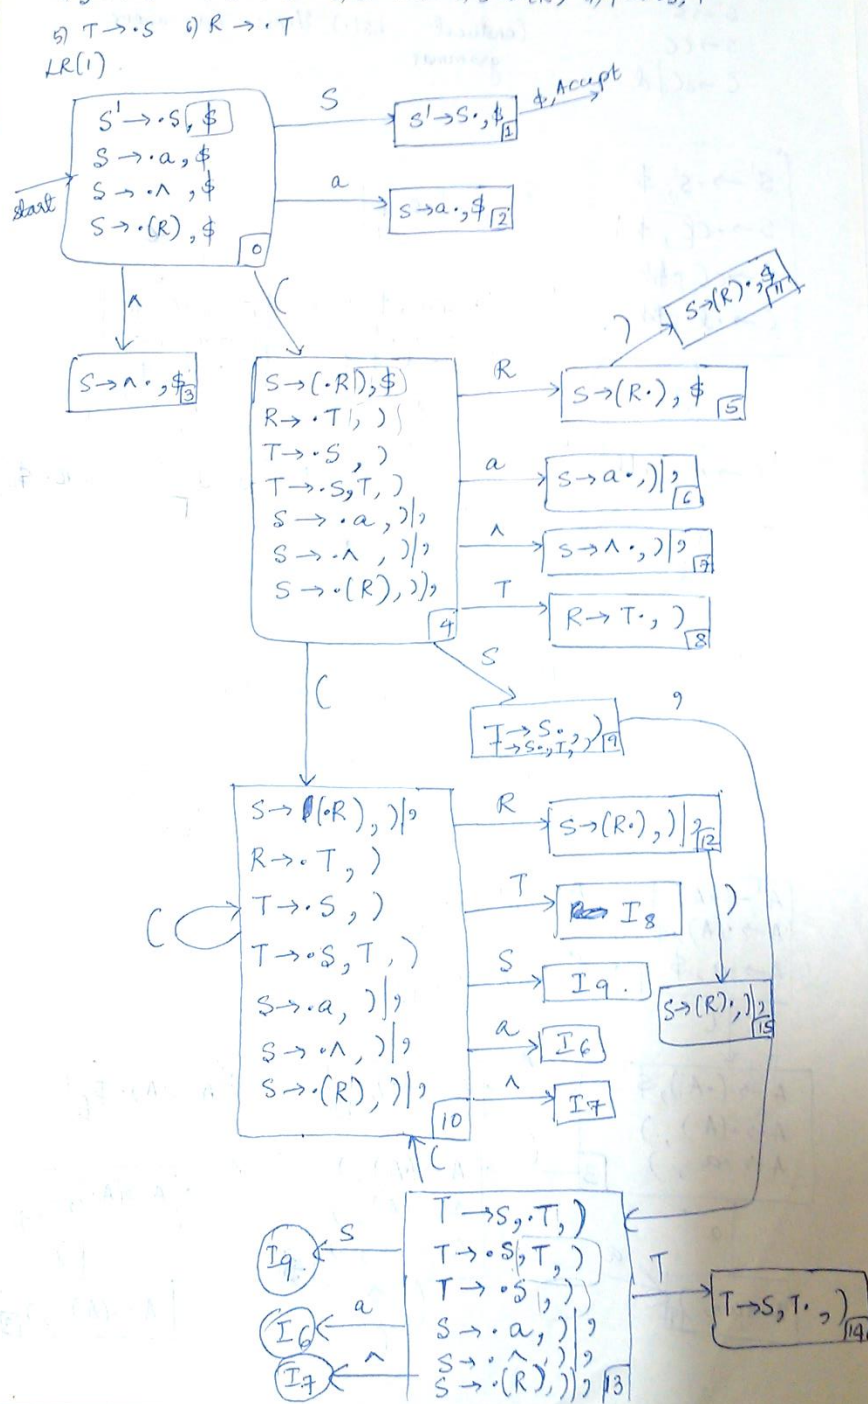 5) T→·S 6) R→·T
LR(1)
start
S'→·S, $
S→·a, $
S→·∧, $
S→·(R), $
0
S
S'→S·, $
1
$, Accept
a
S→a·, $
2
∧
(
S→∧·, $
3
S→(·R), $
R→·T, )
T→·S, )
T→·S,T, )
S→·a, )|,
S→·∧, )|,
S→·(R), )|,
4
R
S→(R·), $
5
)
S→(R)·, $
11
a
S→a·, )|,
6
∧
S→∧·, )|,
7
T
R→T·, )
8
S
T→S·, )
T→S·,T, )
9
,
(
S→(·R), )|,
R→·T, )
T→·S, )
T→·S,T, )
S→·a, )|,
S→·∧, )|,
S→·(R), )|,
10
(
R
S→(R·), )|,
12
T
I8
)
S
I9.
S→(R)·, )|,
15
a
I6
∧
I7
(
T→S,·T, )
T→·S,T, )
T→·S, )
S→·a, )|,
S→·∧, )|,
S→·(R), )|,
13
S
I9
a
I6
∧
I7
T
T→S,T·, )
14